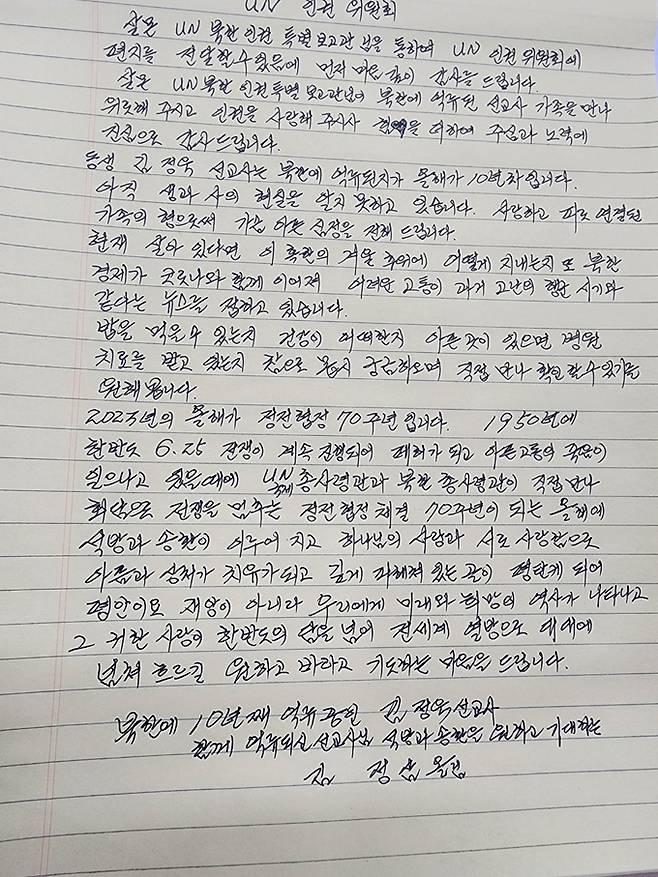 UN 인권 위원회
살몬 UN 북한 인권 특별보고관 님을 통하여 UN 인권 위원회에
편지를 전달할수 있음에 먼저 마음 깊이 감사를 드립니다.
살몬 UN북한 인권특별보고관님이 북한에 억류된 선교사 가족을 만나
위로해 주시고 인권을 사랑해 주시사 힘을 더하여 주심과 노력에
진심으로 감사드립니다.
동생 김정욱 선교사는 북한에 억류된지가 올해가 10년차입니다.
아직 생과 사의 현실을 알지 못하고 있습니다. 사랑하고 피로 연결된
가족의 형으로써 가슴 아픈 심정을 전해 드립니다.
현재 살아 있다면 이 혹한의 겨울 추위에 어떻게 지내는지 또 북한
경제가 코로나와 함께 이어져 어려운 고통이 과거 고난의 행군 시기와
같다는 뉴스를 접하고 있습니다.
밥을 먹을수 있는지 건강이 어떠한지 아픈 곳이 있으면 병원
치료를 받고 있는지 참으로 몹시 궁금하오며 직접 만나 확인할수있기를
원해 봅니다.
2023년의 올해가 정전협정 70주년 입니다. 1950년에
한반도 6.25 전쟁이 계속 진행되어 폐허가 되고 아픈고통의 죽음이
일어나고 있을때에 UN 국제 총사령관과 북한 총사령관이 직접 만나
회담으로 전쟁을 멈추는 정전협정 체결 70주년이 되는 올해에
석방과 송환이 이루어 지고 하나님의 사랑과 서로 사랑함으로
아픔과 상처가 치유가되고 깊게 파헤쳐 있는 곳이 평탄케 되어
평안이요 재앙이 아니라 우리에게 미래와 희망의 역사가 나타나고
그 귀한 사랑이 한반도의 담을 넘어 전세계 열방으로
넘쳐 흐르길 원하고 바라고 기도하는 마음을 드립니다.
북한에 10년째 억류중인 김정욱선교사
함께 억류되신 선교사님 석방과 송환을 원하고 기대하는
김 정삼 올림